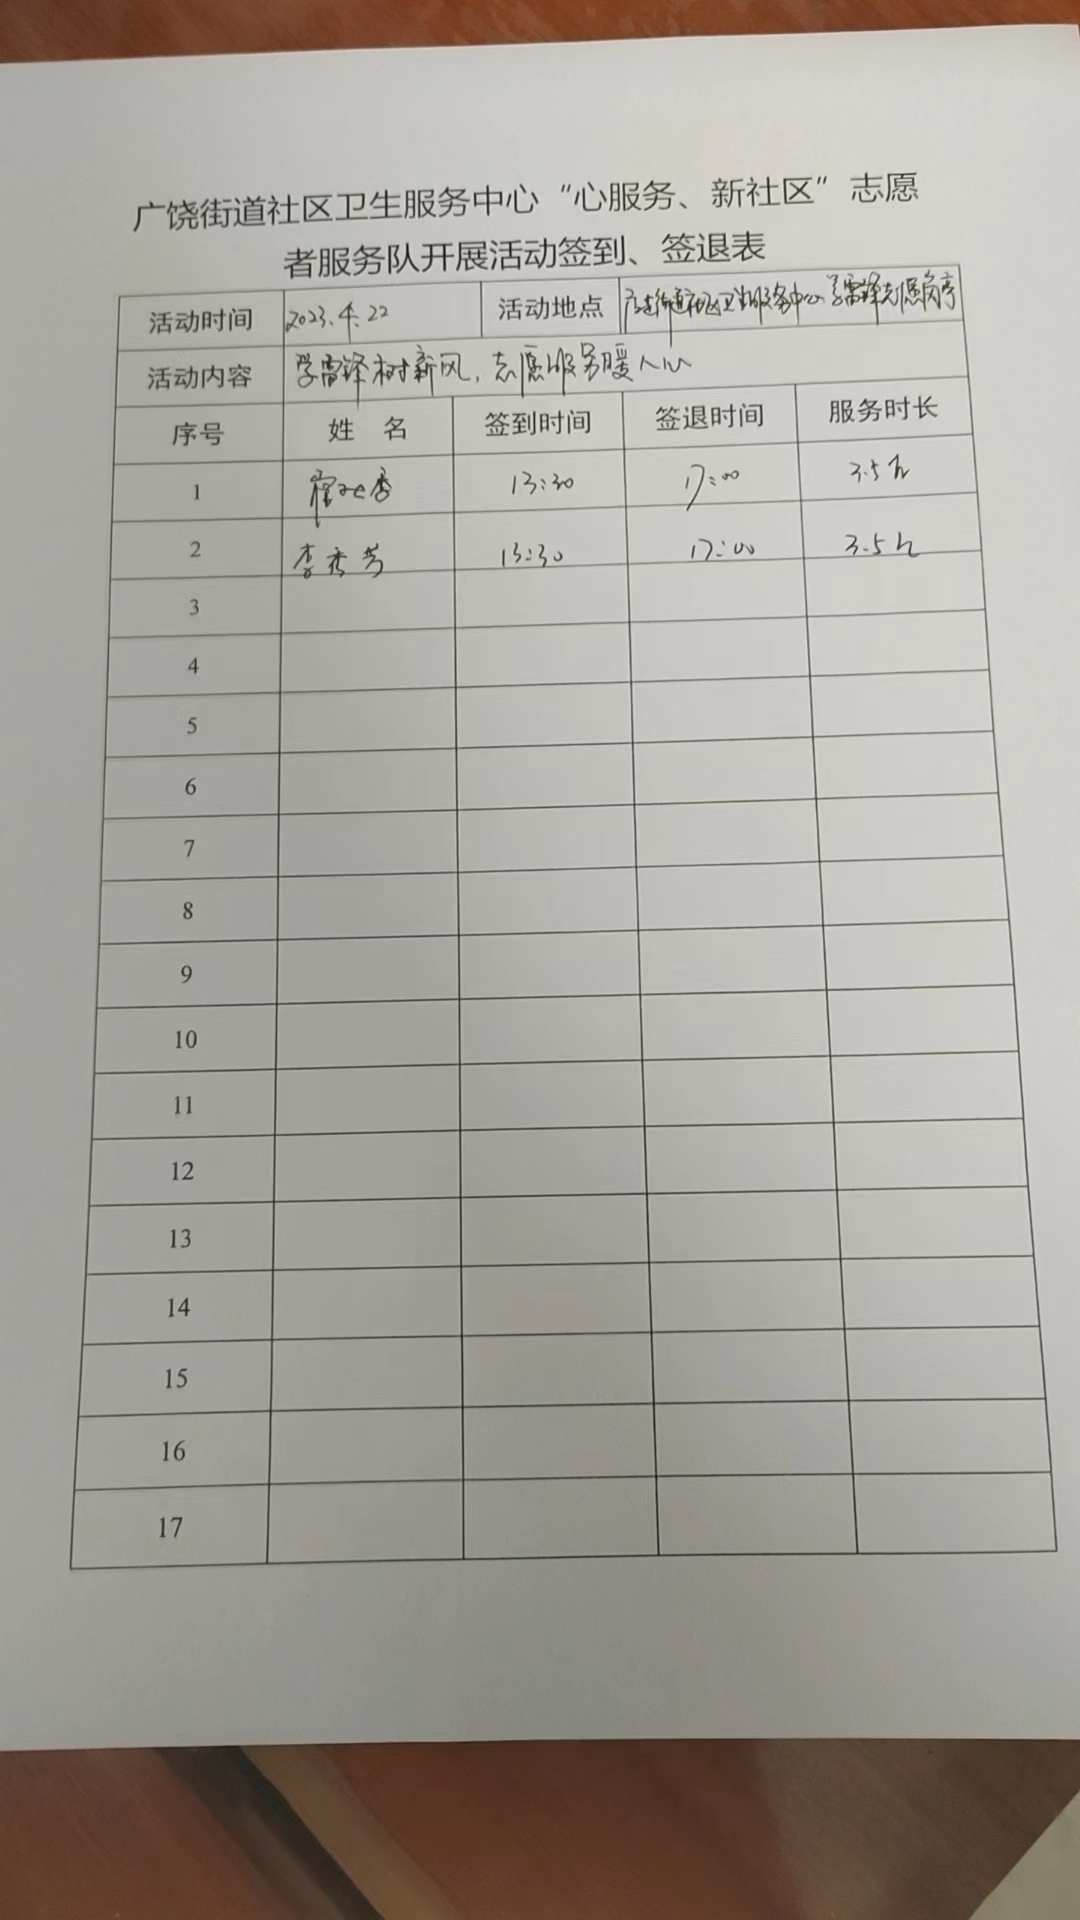 广饶街道社区卫生服务中心“心服务、新社区”志愿
者服务队开展活动签到、签退表
活动时间 2023.4.22 活动地点 广饶街道社区卫生服务中心学雷锋志愿岗亭
活动内容 学雷锋树新风,志愿服务暖人心
序号 姓 名 签到时间 签退时间 服务时长
1 13:30 17:00 3.5h
2 李秀芳 13:30 17:00 3.5h
3
4
5
6
7
8
9
10
11
12
13
14
15
16
17